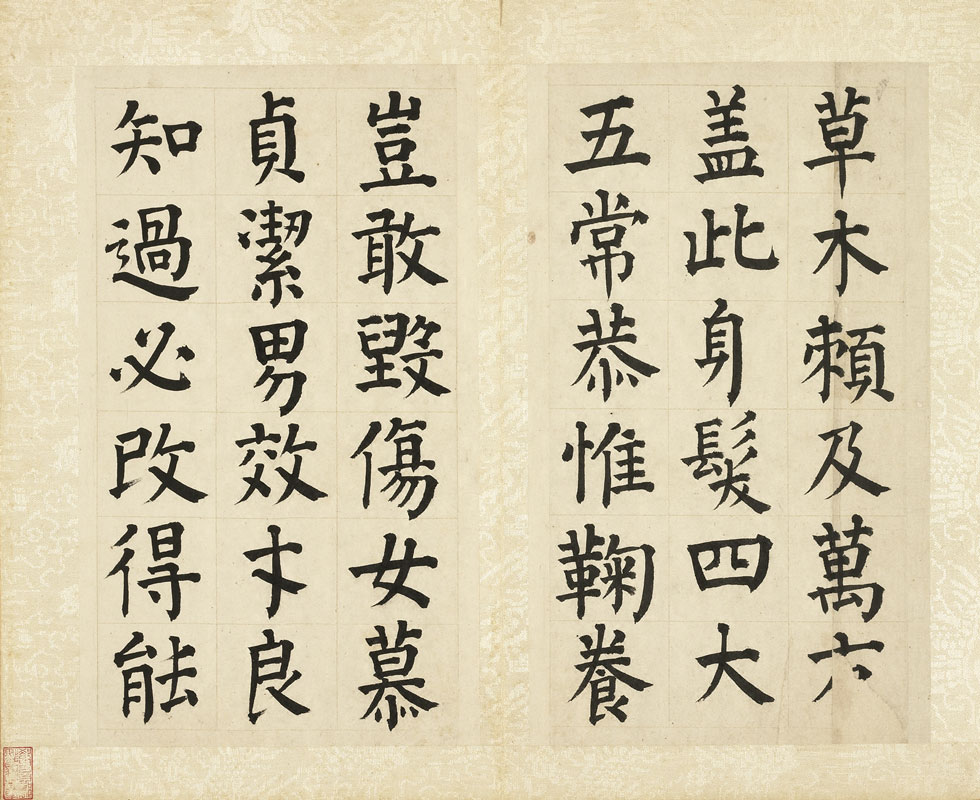 草木賴及萬六
盖此身髮四大
五常恭惟鞠養
豈敢毀傷女慕
貞潔男效才良
知過必改得能